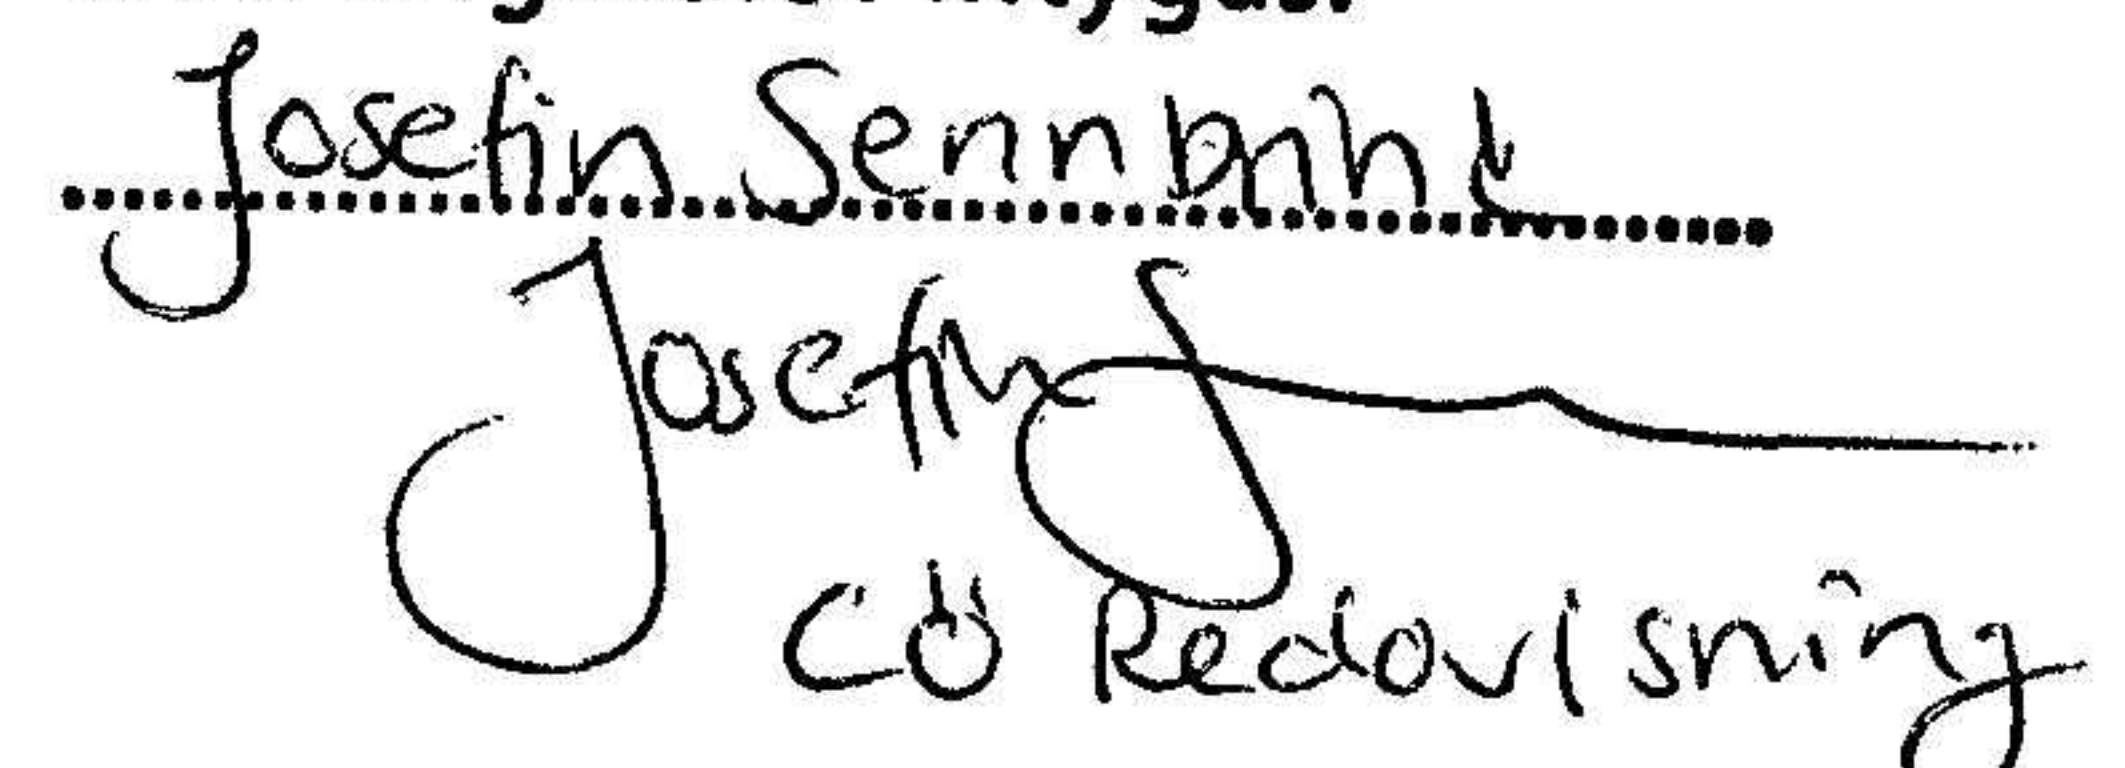 Josefin Senn
Josefin S
CÖ Redovisning